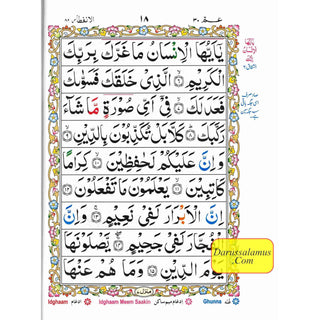 الانفطار ٨٢
١٨
عـمّ ٣٠
يٰۤاَيُّهَا الْاِنْسَانُ مَا غَرَّكَ بِرَبِّكَ
الْكَرِيْمِ ۙ﴿٦﴾ الَّذِيْ خَلَقَكَ فَسَوّٰىكَ
فَعَدَلَكَ ۙ﴿٧﴾ فِيْۤ اَيِّ صُوْرَةٍ مَّا شَآءَ
رَكَّبَكَ ؕ﴿٨﴾ كَلَّا بَلْ تُكَذِّبُوْنَ بِالدِّيْنِ ۙ﴿٩﴾
وَاِنَّ عَلَيْكُمْ لَحٰفِظِيْنَ ۙ﴿١٠﴾ كِرَامًا
كَاتِبِيْنَ ۙ﴿١١﴾ يَعْلَمُوْنَ مَا تَفْعَلُوْنَ ﴿١٢﴾
اِنَّ الْاَبْرَارَ لَفِيْ نَعِيْمٍ ۚ﴿١٣﴾ وَاِنَّ
الْفُجَّارَ لَفِيْ جَحِيْمٍ ۚۖ﴿١٤﴾ يَّصْلَوْنَهَا
يَوْمَ الدِّيْنِ ﴿١٥﴾ وَمَا هُمْ عَنْهَا
منزل ٧
Darussalamus
.Com
Idghaam ادغام
Idghaam Meem Saakin ادغام میم ساکن
Ghunna غنہ